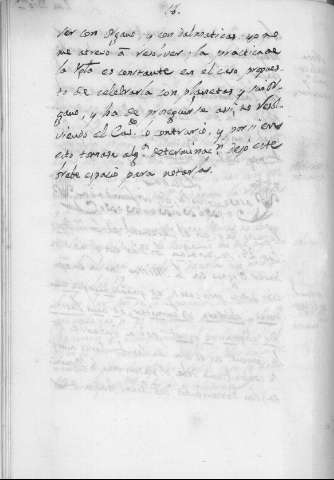 16.
ver con organo, y con dalmaticas, yo no
me atrevo â resolver: la practica de
la Ygla es constante en el caso propues-
to de celebrarla con planetas y sin Or-
gano, y ha de proseguirse asi, no resol-
viendo el Cavdo. lo contrario, y por si en es-
cito tomase algn. determinacn. dejo este
breve espacio para notarlas.